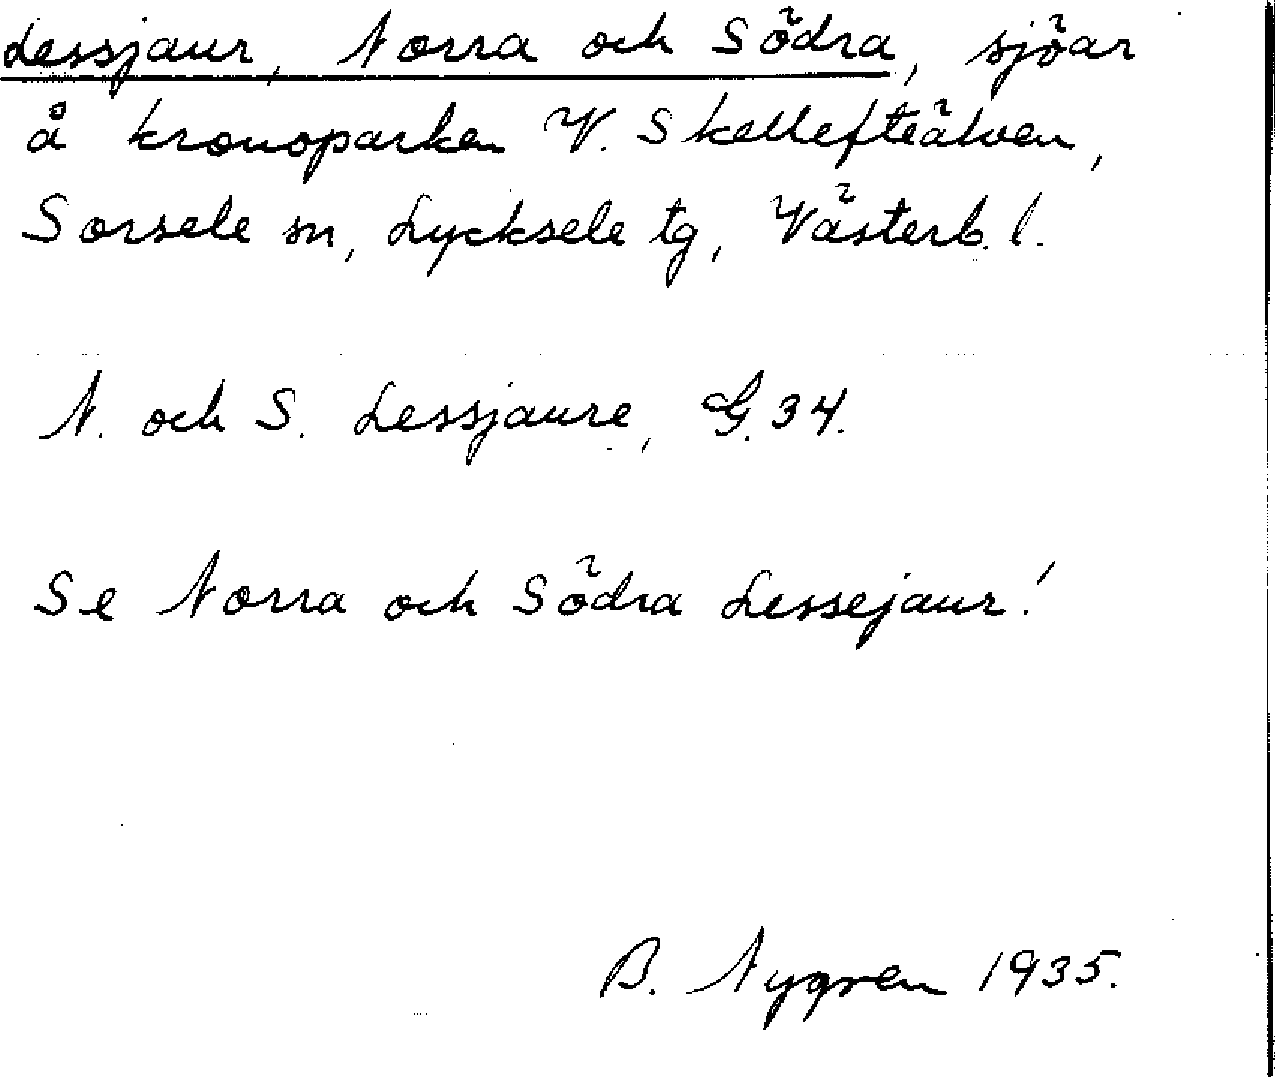 Lessjaur, Norra och Södra, sjöar
å kronoparken V. Skellefteälven,
Sorsele sn, Lycksele tg, Västerb. l.
N. och S. Lessjaure, G. 34.
Se Norra och Södra Lessejaur!
B. Nygren 1935.